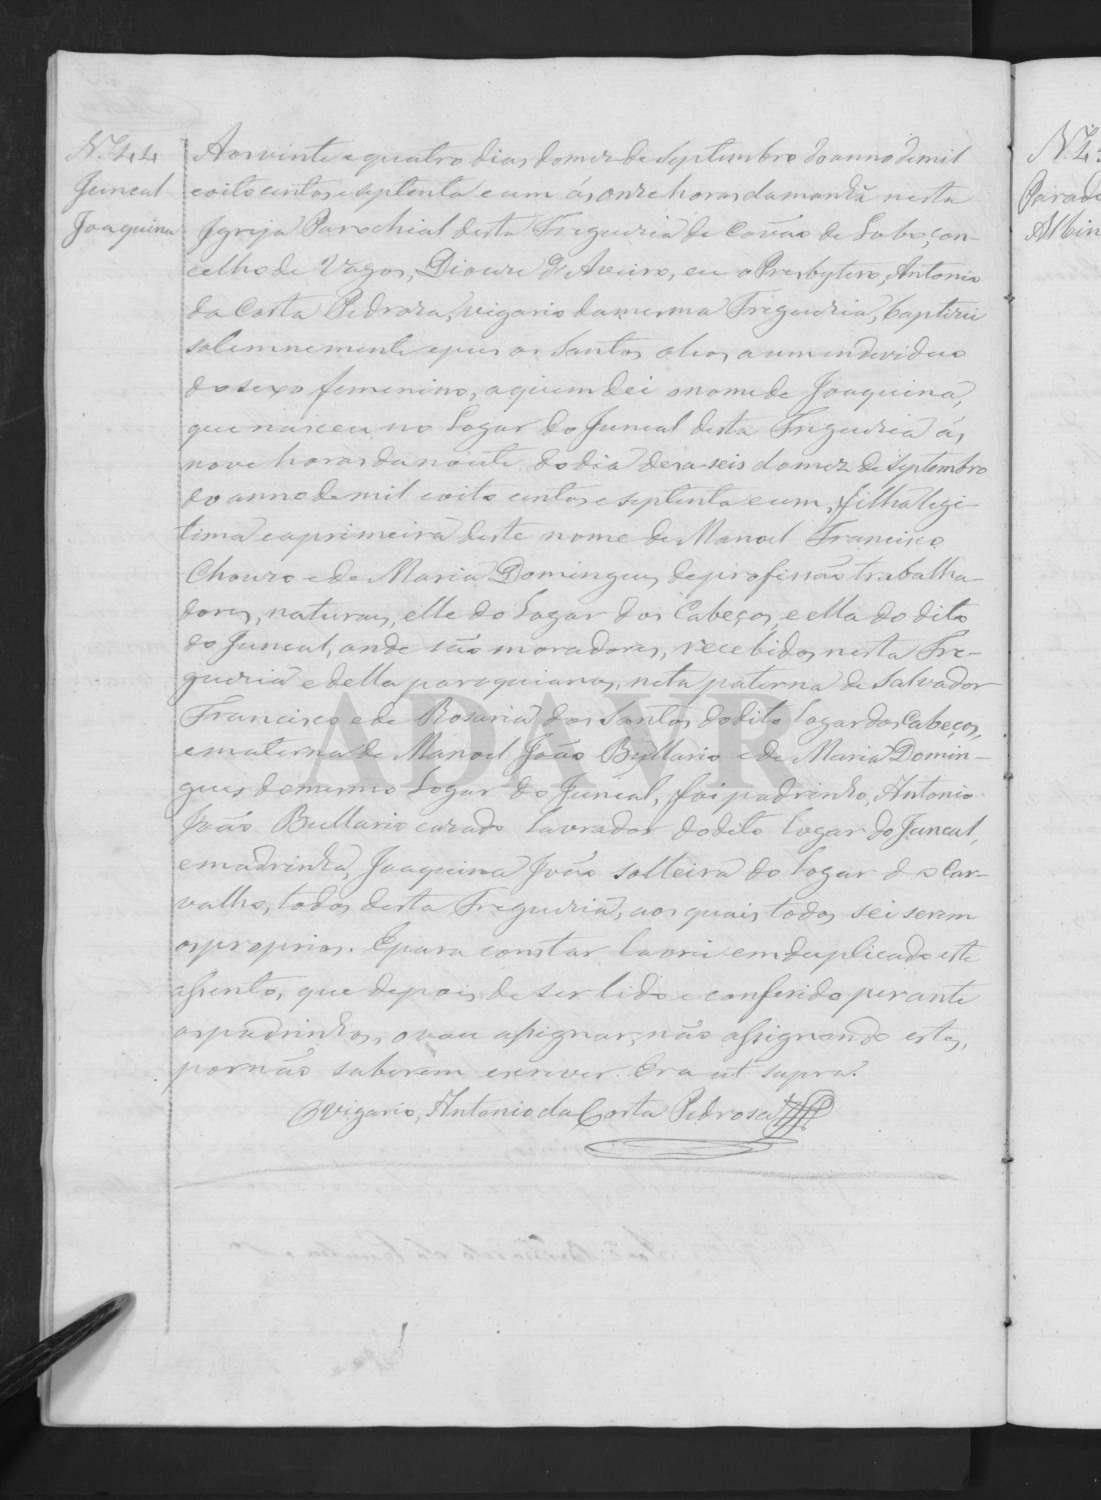 N.º 44
Juncal
Joaquina
Aos vinte e quatro dias do mez de Septembro do anno de mil
e oito centos e septenta e um ás onze horas da manhã nesta
Igreja Parochial desta Freguezia de Covão do Lobo, con-
celho de Vagos, Diocese d'Aveiro, eu o Presbytero, Antonio
da Costa Pedroza, vigario da mesma Freguezia, baptizei
solemnemente e puz os Santos oleos a um individuo
do sexo femenino, a quem dei o nome de Joaquina,
que nasceu no Logar do Juncal desta Freguezia ás
nove horas da noute do dia deza-seis do mez de Septembro
do anno de mil e oito centos e septenta e um, filha legi-
tima e a primeira deste nome de Manoel Francisco
Chouzo e de Maria Domingues, de profissão trabalha-
dores, naturaes, elle do Logar dos Cabeços, e ella do dito
do Juncal, onde são moradores, recebidos nesta Fre-
guezia e della paroquianos, neta paterna de Salvador
Francisco e de Rosaria dos Santos do dito logar dos Cabeços,
e materna de Manoel João Bullario e de Maria Domin-
gues do mesmo Logar do Juncal, foi padrinho, Antonio
João Bullario cazado lavrador do dito logar do Juncal,
e madrinha, Joaquina João solteira do logar do Car-
valho, todos desta Freguezia, aos quais todos sei serem
os proprios. E para constar lavrei em duplicado este
assento, que depois de ser lido e conferido perante
os padrinhos, o vou assignar, não assignando estes,
por não saberem escrever. Era ut supra.
O vigario, Antonio da Costa Pedrosa
N.º 4
Parada
Albin
ADAVR